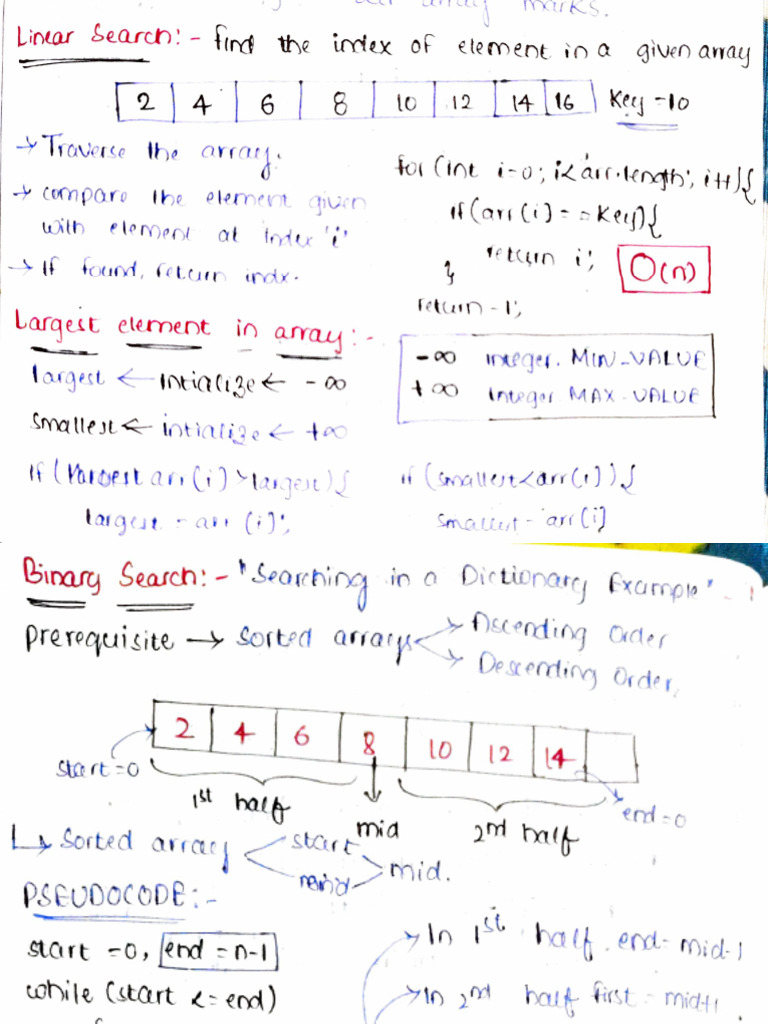 array marks.
Linear Search:- find the index of element in a given array
2 4 6 8 10 12 14 16 Key =10
→ Traverse the array.
→ compare the element given
with element at index 'i'
→ If found, return indx.
for (int i=0; i<arr.length; i++){
if(arr(i)==Key){
return i;
}
O(n)
return -1;
Largest element in array:-
largest ← intialize ← -∞
smallest ← intialize ← +∞
-∞ integer. MIN_VALUE
+∞ integer MAX_VALUE
if ( arr(i)>largest){
largest = arr (i);
if (smallest<arr(i)){
smallest = arr(i)
Binary Search:- "Searching in a Dictionary Example" -
prerequisite → sorted arrays
→ Ascending Order
→ Descending Order.
2 4 6 8 10 12 14
start=0
1st half
mid
2nd half
end=0
↳ Sorted array
start
mid.
PSEUDOCODE:-
start =0, end = n-1
while (start <=end)
→ In 1st half end= mid-1
→ In 2nd half first = mid+1